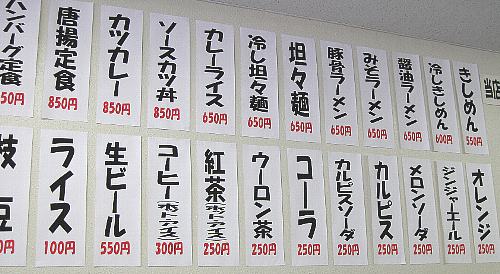 当店
きしめん
550円
冷しきしめん
600円
醤油ラーメン
650円
みそラーメン
650円
豚骨ラーメン
650円
坦々麺
650円
冷し坦々麺
650円
カレーライス
650円
ソースカツ丼
850円
カツカレー
850円
唐揚定食
850円
ハンバーグ定食
50円
オレンジ
250円
ジンジャーエール
250円
メロンソーダ
250円
カルピス
250円
カルピスソーダ
250円
コーラ
250円
ウーロン茶
250円
紅茶(ホット・アイス)
250円
コーヒー(ホット・アイス)
300円
生ビール
550円
ライス
100円
枝豆
0円